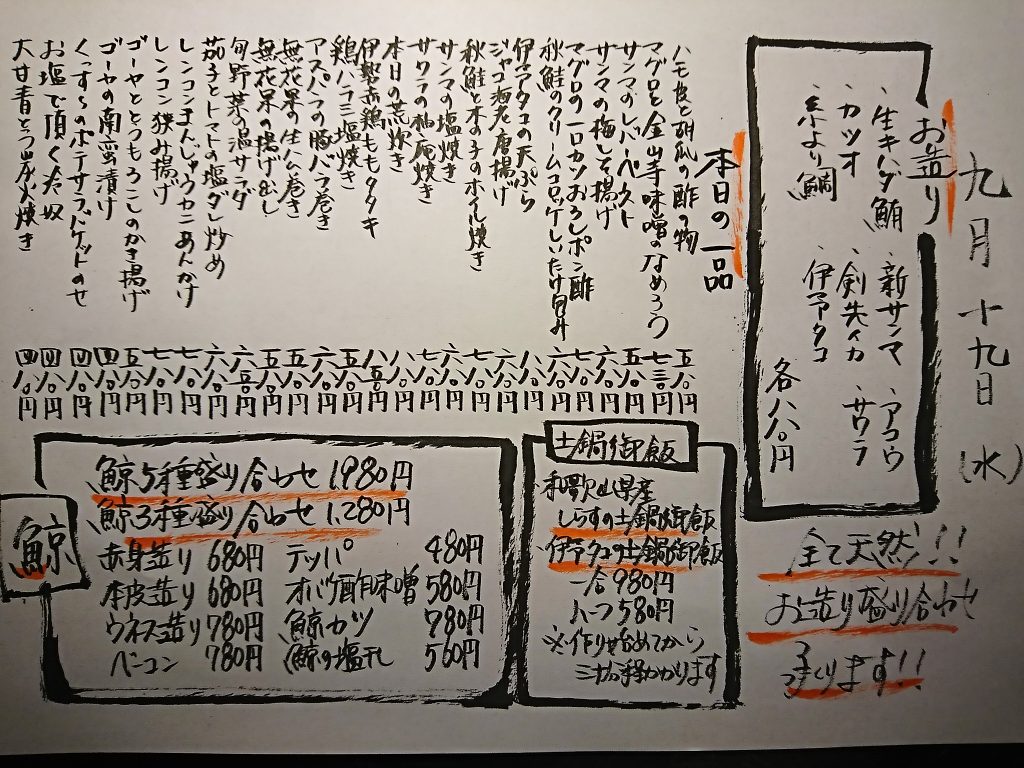 九月十九日(水)
お造り
・生キハダ鮪 ・新サンマ ・アコウ
・カツオ ・剣先イカ ・サワラ
・糸より鯛 ・伊予タコ
各八八〇円
全て天然!!
お造り盛り合わせ
つくります!!
本日の一品
ハモ皮と胡瓜の酢の物 五八〇円
マグロと金山寺味噌のなめろう 七三〇円
サンマのレバーペースト 五八〇円
サンマの梅しそ揚げ 六八〇円
マグロの一口カツおろしポン酢 七八〇円
秋鮭のクリームコロッケしいたけ包み 六八〇円
伊予タコの天ぷら 八八〇円
ジャコ海老唐揚げ 六八〇円
秋鮭と木の子のホイル焼き 七八〇円
サンマの塩焼き 六八〇円
サワラの柚庵焼き 七八〇円
本日の荒炊き 八八〇円
伊勢赤鶏ももタタキ 八五〇円
鶏ハラミ塩焼き 五八〇円
アスパラの豚バラ巻き 六八〇円
無花果の生ハム巻き 五八〇円
無花果の揚げ出し 五八〇円
旬野菜の温サラダ 六五〇円
茄子とトマトの塩ダレ炒め 六八〇円
レンコンまんじゅうカニあんかけ 七八〇円
レンコン挟み揚げ 七八〇円
ゴーヤととうもろこしのかき揚げ 五八〇円
ゴーヤの南蛮漬け 四八〇円
くっすぅのポテサラバケットのせ 四八〇円
お塩で頂く冷奴 四八〇円
大甘青とう炭火焼き 四八〇円
土鍋御飯
和歌山県産
しらすの土鍋御飯
伊予タコの土鍋御飯
一合 980円
ハーフ 580円
※作り始めてから
三十分程かかります
鯨
鯨5種盛り合わせ 1,980円
鯨3種盛り合わせ 1,280円
赤身造り 680円 テッパ 480円
本皮造り 680円 オバケ酢味噌 580円
ウネス造り 780円 鯨カツ 780円
ベーコン 780円 鯨の塩干し 560円